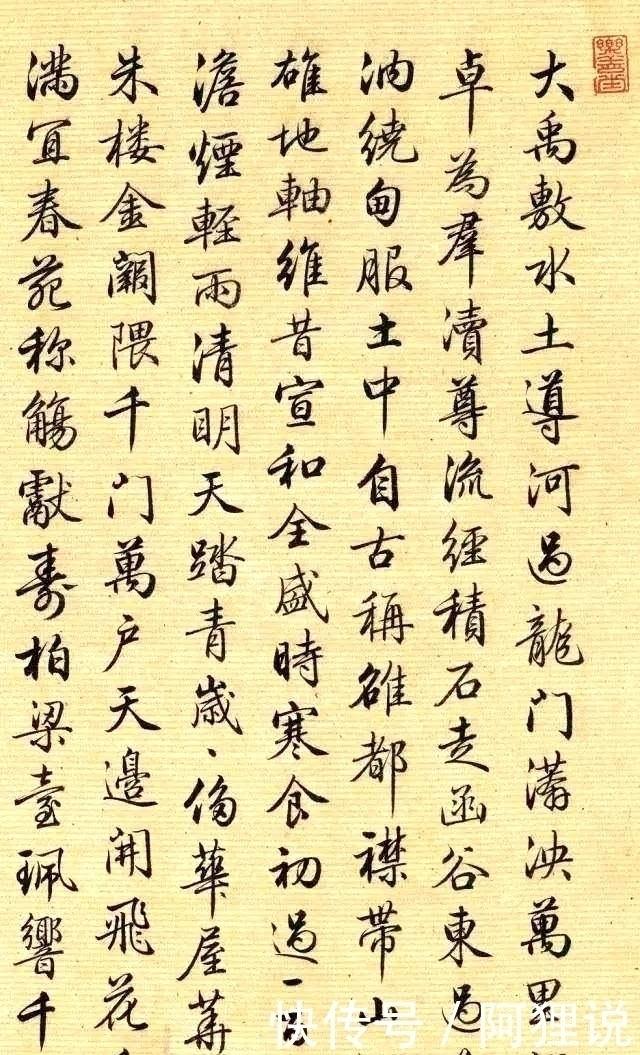 大禹敷水土導河過龍门漭泱萬里
卓為羣瀆尊流經積石走函谷東過
汭繞甸服土中自古稱雄都襟帶山
雄地軸維昔宣和全盛時寒食初過一百
澹煙輕雨清明天踏青歲、侈華屋
朱楼金闕隈千门萬户天邊開飛花
滿宜春苑称觴獻壽柏梁臺珮響千
快传号 / 阿狸说